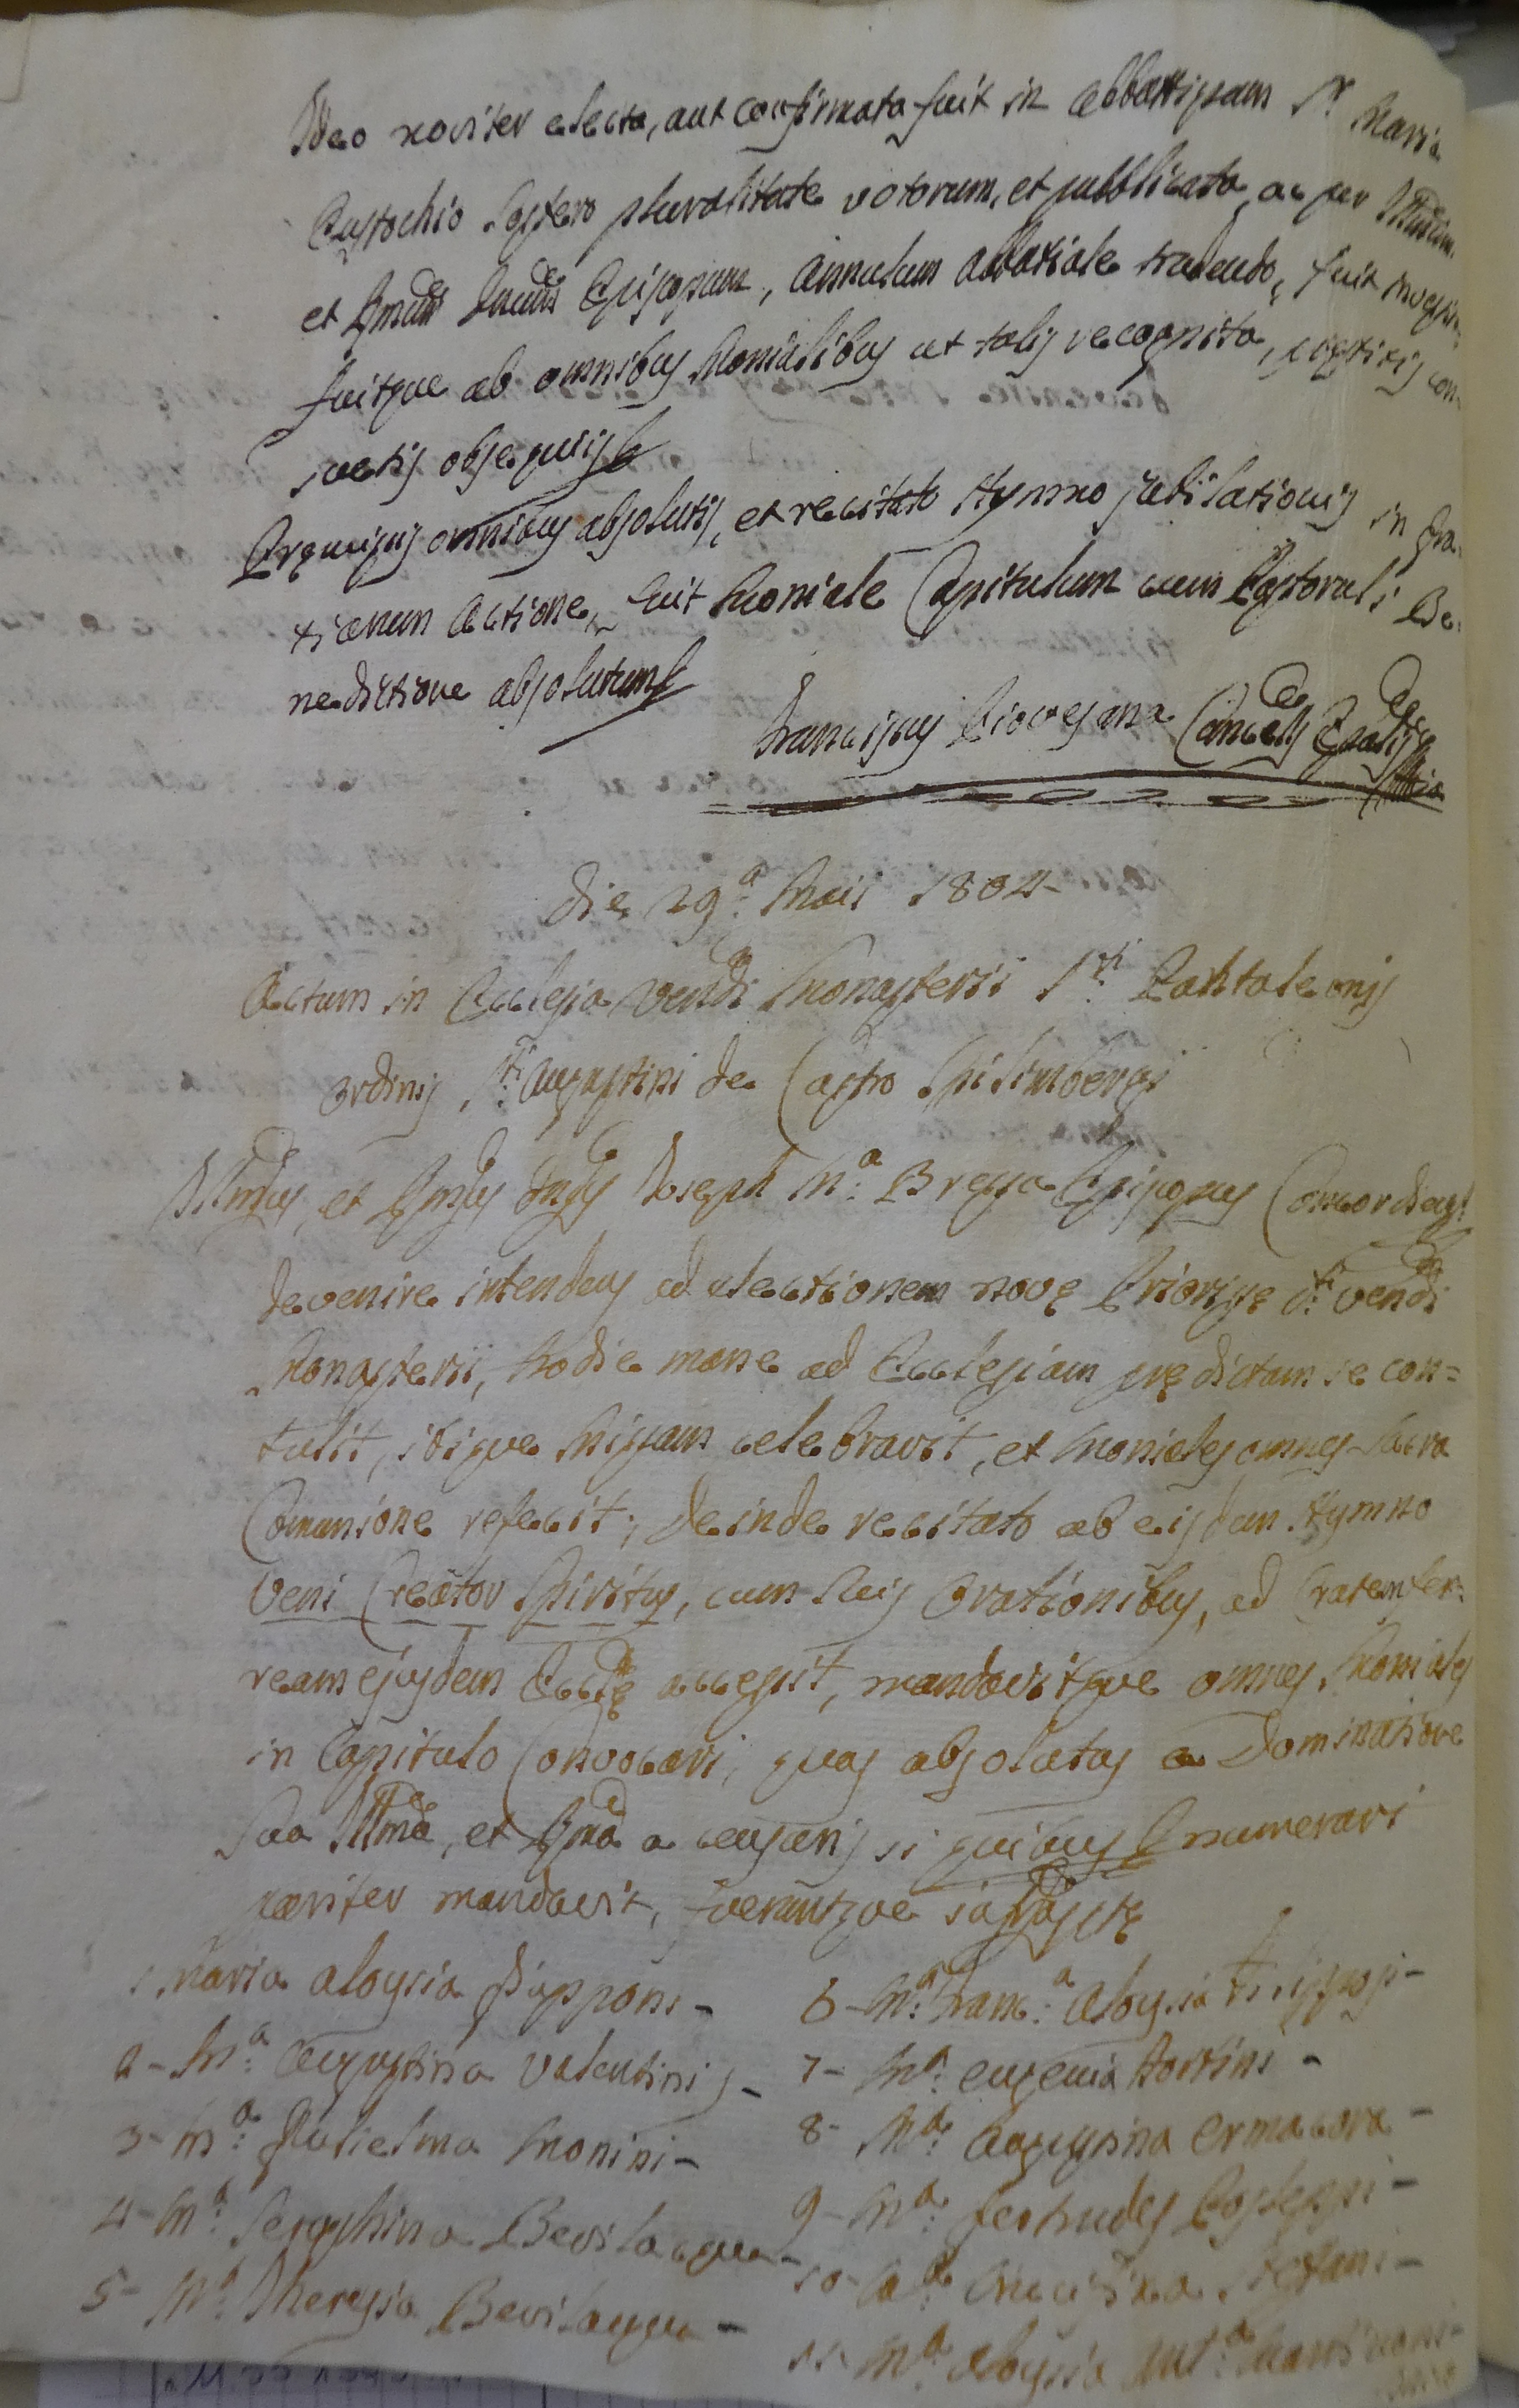 Ideo noviter electa, aut confirmata fuit in Abbatissam Sr. Maria
Eustochio pluralitate votorum, et pubblicata, ac per Illmum
et Rmum Dnum Episcopum, Annulum Abbatiale tradendo, fuit
fuitque ab omnibus Monialibus ut talis recognita, con-
suetis obsequiis
Præmissis omnibus absolutis, et recitato Hymno jubilationis in gra-
tiarum actione, fuit Moniale Capitulum cum Pastorali Be-
nedictione absolutum
Franciscus Ciovesana Cancells Epalis
Die 29.a Maii 1804
Actum in Ecclesia Vendi Monasterii S.ti Pantaleonis
ordinis S.ti Augustini de Castro Spilimbergi
Illmus, et Rmus Dnus Joseph M.a Bressa Episcopus Concordiens
devenire intendens ad electionem novę Priorissę d.ti Vendi
Monasterii, hodie mane ad Ecclesiam prędictam se con=
tulit, ibique Missam celebravit, et Moniales omnes Sacra
Comunione refecit; deinde recitato ab eisdem Hymno
Veni Creator Spiritus, cum suis Orationibus, ad Cratem fer-
ream ejusdem Ecclę accessit, mandavitque omnes Moniales
in Capitulo Convocari, quas absolutas a Dominatione
Sua Illma, et Rma a censuris si quibus Enumerari
pariter mandavit, fueruntque
1 Maria Aloysia Diapponi -
2 - M.a Augustina Valentinis -
3 - M.a Gulielma Monini -
4 - M.a Seraphina Bevilacqua -
5 - M.a Theresia Bevilacqua -
6 - M.a Franc.a Aloysia Filippusi -
7 - M.a Eugenia Tortini -
8 - M.a Ermacora -
9 - M.a Gertrudes -
10 - M.a Stefani -
11 - M.a Aloysia Ant.a